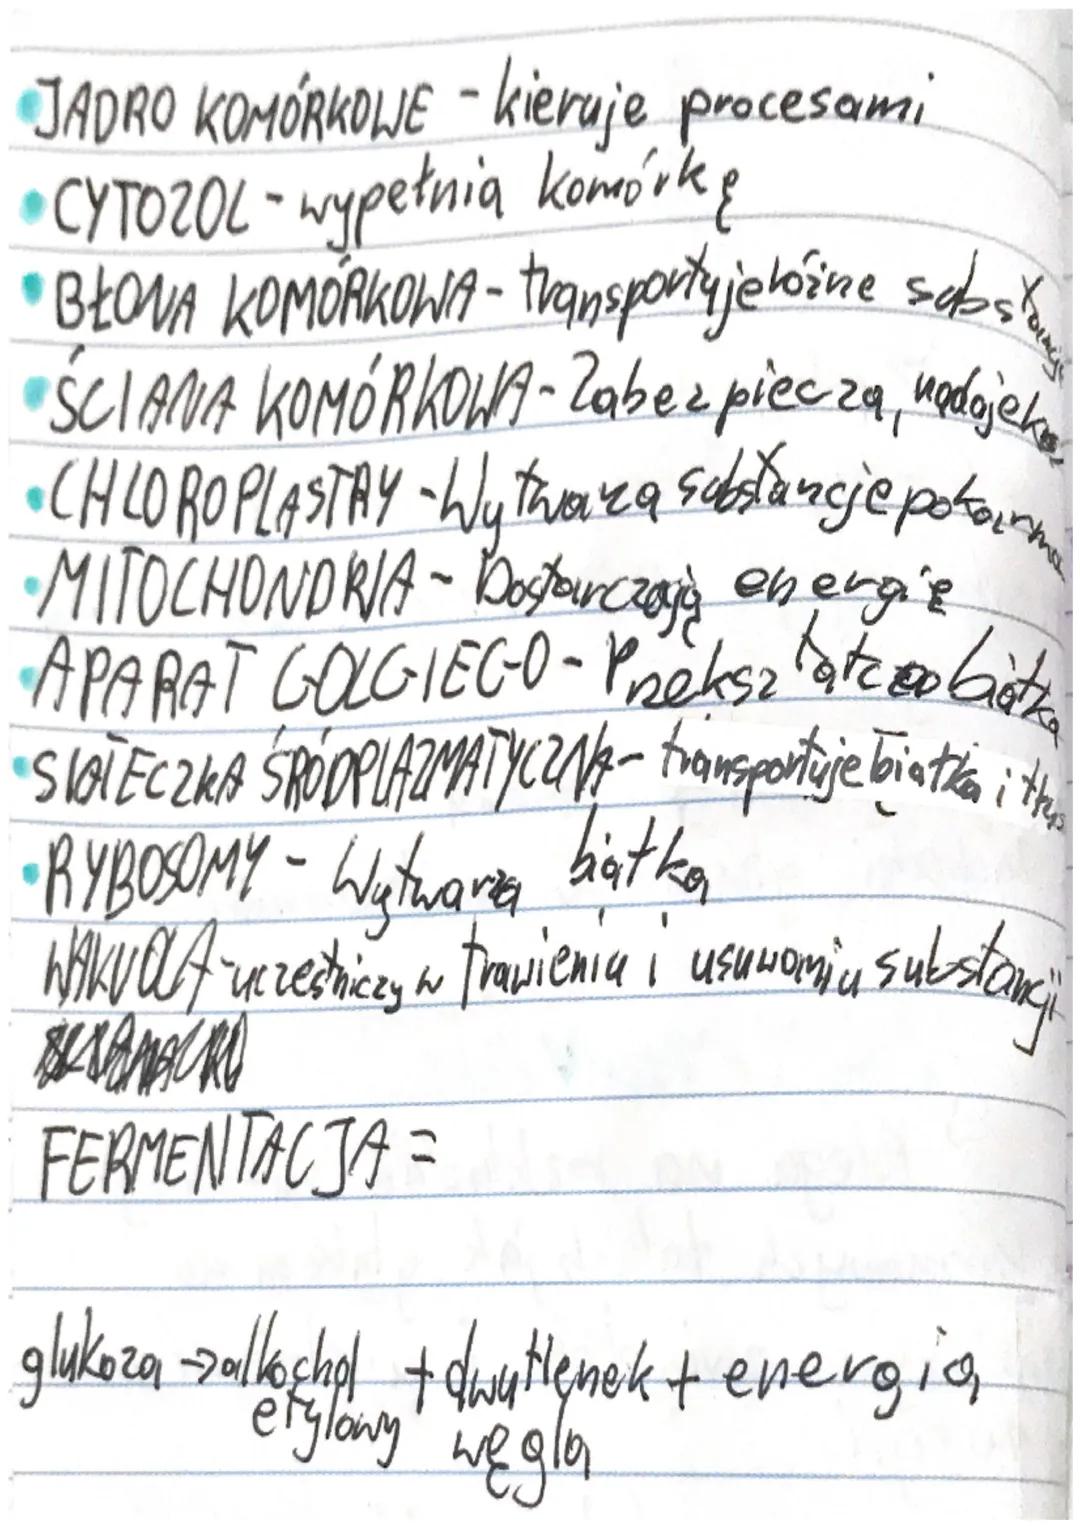 •JADRO KOMÓRKOWE - kieruje procesami
•CYTOZOL - wypełnia komórkę
•BŁONA KOMÓRKOWA - transportuje różne substancje
•ŚCIANA KOMÓRKOWA - Zabezpiecza, nadaje
•CHLOROPLASTRY - Wytwarza substancje pokarmo
•MITOCHONDRIA - Dostarczają energię
•APARAT GOLGIEGO - Przekształca białka
•SIATECZKA ŚRÓDPLAZMATYCZNA - transportuje białka i tłus
•RYBOSOMY - Wytwarza białka
WAKUOLA - uczestniczy w trawieniu i usuwaniu substancji
FERMENTACJA =
glukoza → alkochol + dwutlenek + energia
etylowy węgla